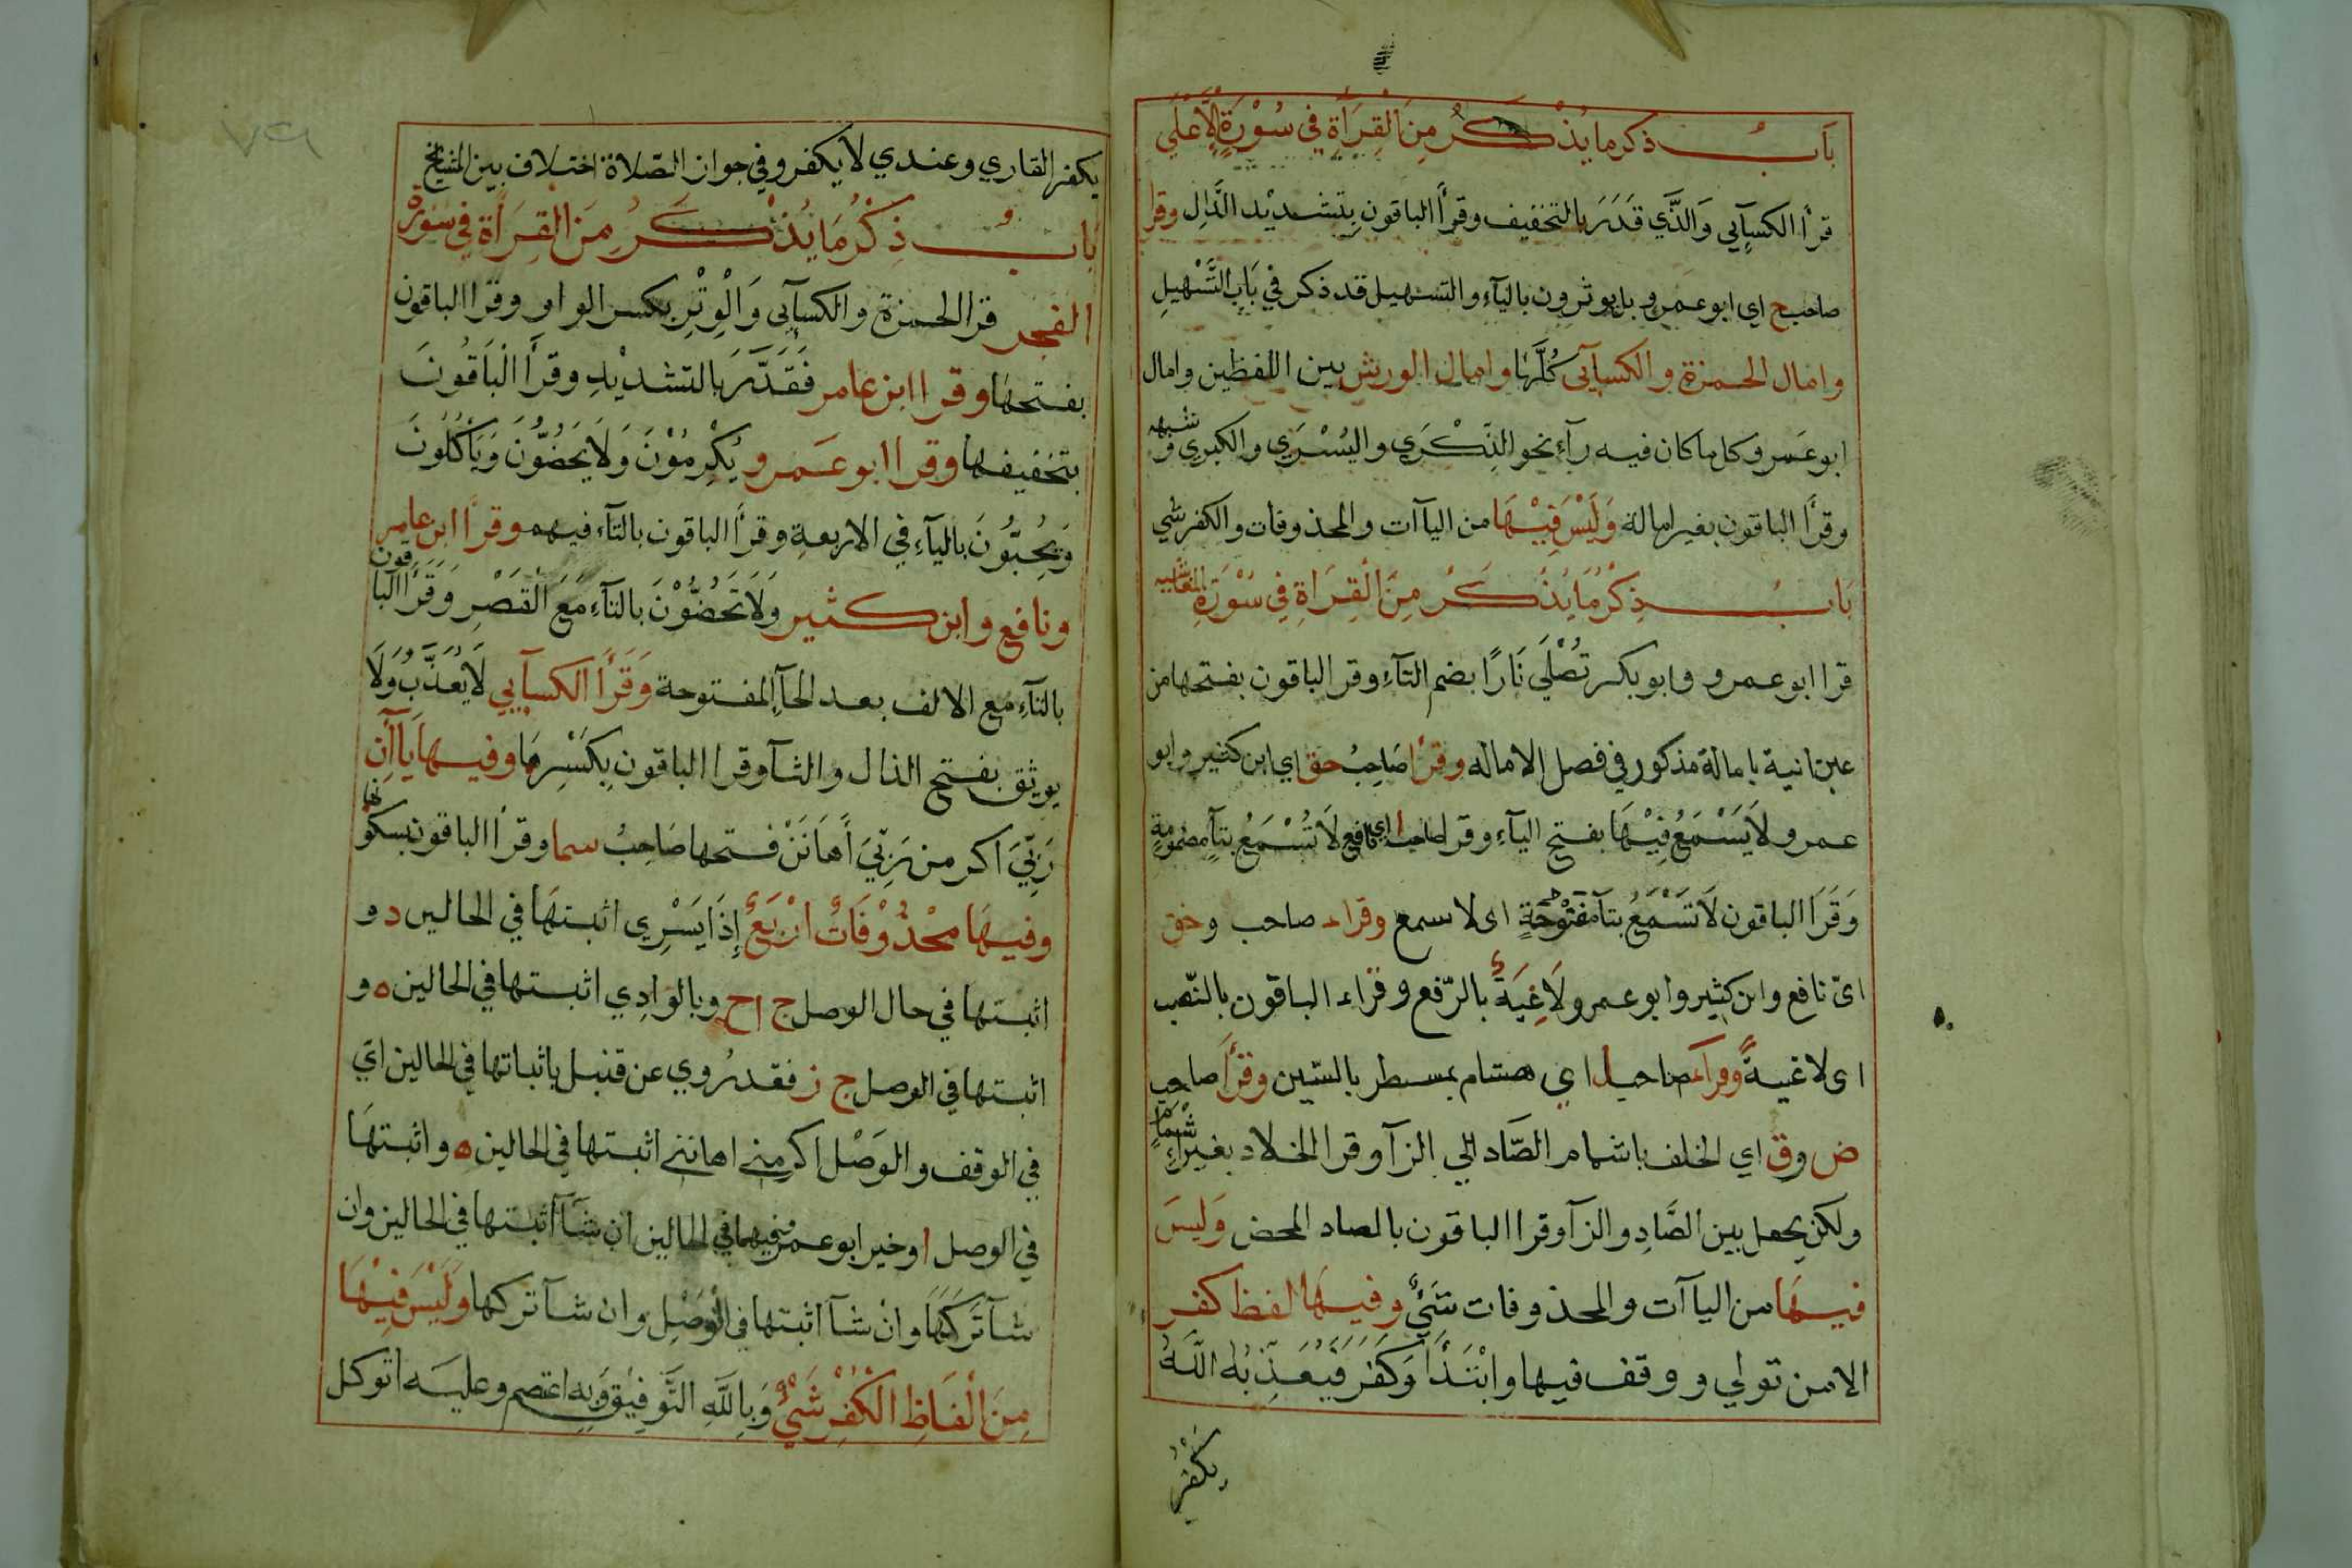 باب ذكر ما يُذْكَرُ مِنَ الْقِرَأَةِ في سُوْرَةِ الْأَعْلَي
قرأ الكسآيي وَالذَّي قَدَرَ بالتخفيف وقرأ الباقون بِتشديْد الدَّالِ وقرا
صاحب ح اي ابو عمرو بل يوثرون باليآء والتسهيل قد ذكر في بَابِ التَّسْهِيلِ
وامال الحمزة والكسآيى كُلَّهَا وامال الورش بين اللفظين وامال
ابو عَمرو كل ما كان فيه رآء نحو الذِّكْرَي واليُسْرَي والكبرى و شبهه
وقرأ الباقون بغير امالة وَلَيْسَ فِيْهَا من اليآآت والمحذوفات والكفر شي
بَاب ذِكْرُ مَا يُذْكَرُ مِنَ الْقِرَاةِ فِي سُوْرَةِ الغاشيه
قرا ابو عمرو وابو بكر تُصْلَي نَارًا بضم التآءِ وقرا الباقون بفتحها من
عين انية با مالة مذكور في فصل الاماله وقرأ صَاحِبُ حق اي ابن كثير وابو
عمرو لَا يَسْمَعُ فِيْهَا بفتح اليآءِ وقرا صاحب ا اي نافع لَا تُسْمَعُ بتآءٍ مضمومةٍ
وَقَرَا الباقون لَا تَسْمَعُ بتآ مفتُوْحَةٍ اى لا سمع وقراء صاحب وحق
ايّ نافع وابن كثير وابو عمرو لَاغِيَةٌ بالرّفع وقراء الباقون بالنّصب
اى لاغيةً وقرأ صاحب ل اي هشام بمسطر بالسّين وقرأ صاحب
ض وق اي الخلف با شمام الصّاد الي الزآ وقرا الخلاد بغير اشمام
ولكن يجعل بين الصَّادِ والزآ وقرا الباقون بالصاد المحض وَليسَ
فيهَا من اليآآت والمحذوفات شَيْءٌ وفيهَا لفظ كفر
الا من تولي و وقف فيها وابْتَدَأَ وَكَفَرَ فَيُعَذِّبُهُ اللّٰهُ
يكْفُرُ
يكفر القاري وعندي لا يكفر وفي جواز الصّلاة اختلاف بين المشايخ
بَاب ذِكْرُ مَا يُذْكَرُ مِنَ القِرَأَة فِي سُورَةِ
الفجر قرا الحمزة والكسآيى وَالْوِتْرِ بكسر الواو وقرا الباقون
بفتحهَا وقرا ابن عامر فَقَدَّرَ بالتشديْدِ وقرأَ الْبَاقُونَ
بتخفيفها وقرا ابو عَمرو يُكْرِمُوْنَ وَلَا يَحُضُّوْنَ وَيَأْكُلُونَ
وَيُحِبُّونَ باليآءِ في الاربعةِ وقرأ الباقون بالتآء فيهم وقرأ ابن عامر
ونافع وابن كثير وَلَا تَحُضُّوْنَ بالتآءِ مَعَ الْقَصْرِ وَقَرَأَ الباقون
بالتآءِ مع الالف بعد الحآ المفتوحة وَقَرَأَ الكسآيي لَا يُعَذَّبُ وَلَا
يوثق بفتح الذال والثآ وقرا الباقون بِكَسْرِهَا وفيهَا يَآآنِ
رَبِّيَ اكرمن رَبِّيَ أَهَانَنْ فتحها صَاحِبُ سما وقرأ الباقون بسكونها
وفيهَا محْذُوْفَاتٌ ارْبَعٌ إِذَا يَسْرِى اثبتهَا في الحالين د و
اثبتها في حال الوصل ج ا ح وبالوَادِي اثبتها في الحالين ه و
اثبتها في الوصل ج ز فقد رُوي عن قنبل باثباتها في الحالين اي
في الوقف والوَصْل اكرمني اهانني اثبتها في الحالين ه واثبتهَا
في الوصل ا وخير ابو عمرو فيهما في الحالين ان شَآ اثبتها في الحالين وان
شآ تَرَكَهَا وانْ شآ اثبتها في الْوَصْلِ وان شآ تركها وَلَيْسَ فِيْهَا
مِنَ الْفَاظِ الْكُفْرِ شَيْءٌ وَبِاللَّهِ التَّوفيْق وَبِهِ اعتصم وعليه اتوكل